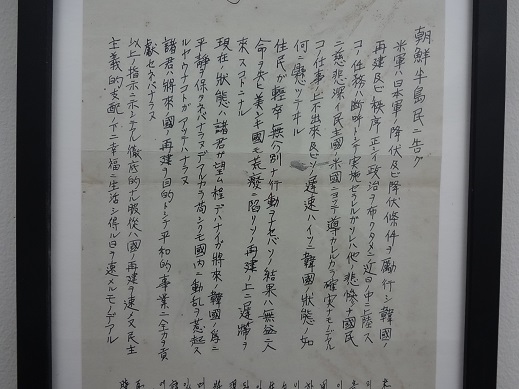 朝鮮半島民ニ告グ
米軍ハ日本軍ノ降伏及ビ降伏條件ヲ励行シ韓國ノ
再建及ビ秩序正シイ政治ヲ布クタメ近日中ニ上陸ス
コノ任務ハ断呼トシテ実施セラルガソレハ他ノ悲惨ナ國民
ニ慈悲深イ民主國ノ米國ニヨッテ導カレルカラ確実ナモノデアル
コノ仕事ノ上出来及ビソノ遅速ハイツニ韓國ノ状態ノ如
何ニ懸ッテオル
住民ガ軽卒ノ無分別ナ行動ヲナセバソノ結果ハ無益ニ人
命ヲ失ヒ美シキ國モ荒癈ニ陥リソノ再建ノ上ニ遅帯ヲ
来スコトニナル
現在ノ状態ハ諸君ガ望ム程デハナイガ將来ノ韓國ノ為ニ
平靜ヲ保タネバナラヌデアルカラ苟シクモ國内ニ動乱ヲ惹起ス
ルヤウナコトガアッテハナラヌ
諸君ハ將来ノ國ノ再建ヲ目的トシテ平和的事業ニ全力ヲ貢
献セネバナラヌ
以上ノ指示ニホンデル徹底的ナル服從ハ國ノ再建ヲ速メ又民主
主義的支配ノ下ニ幸福ニ生活シ得ル日ヲ速メルモノデアル